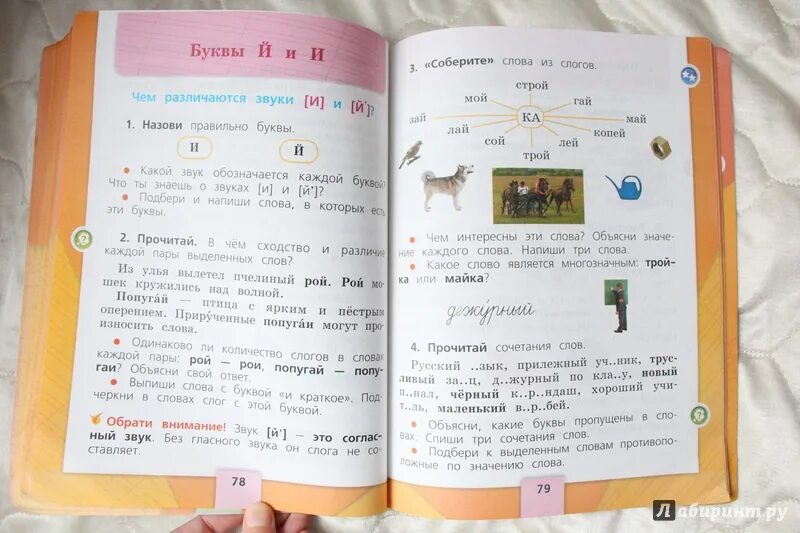 Буквы Й и И
Чем различаются звуки [И] и [Й']?
1. Назови правильно буквы.
И Й
• Какой звук обозначается каждой буквой?
Что ты знаешь о звуках [и] и [й']?
• Подбери и напиши слова, в которых есть
эти буквы.
2. Прочитай. В чём сходство и различие
каждой пары выделенных слов?
Из улья вылетел пчелиный рой. Рой мо-
шек кружились над волной.
Попуга́й — птица с ярким и пёстрым
оперением. Приручённые попуга́и могут про-
износить слова.
• Одинаково ли количество слогов в словах
каждой пары: рой — рои, попугай — попу-
гаи? Объясни свой ответ.
• Выпиши слова с буквой «и краткое». Под-
черкни в словах слог с этой буквой.
Обрати внимание! Звук [й'] — это соглас-
ный звук. Без гласного звука он слога не со-
ставляет.
78
3. «Соберите» слова из слогов.
строй
мой гай
зай КА май
лай копей
сой лей
трой
• Чем интересны эти слова? Объясни значе-
ние каждого слова. Напиши три слова.
• Какое слово является многозначным: трой-
ка или майка?
дежу́рный
4. Прочитай сочетания слов.
Русский ..зык, прилежный уч..ник, трус-
ливый за..ц, д..журный по кла..у, новый
п..нал, чёрный к..р..ндаш, хороший учи-
т..ль, маленький в..р..бей.
• Объясни, какие буквы пропущены в сло-
вах. Спиши три сочетания слов.
• Подбери к выделенным словам противопо-
ложные по значению слова.
79
Лабиринт.ру